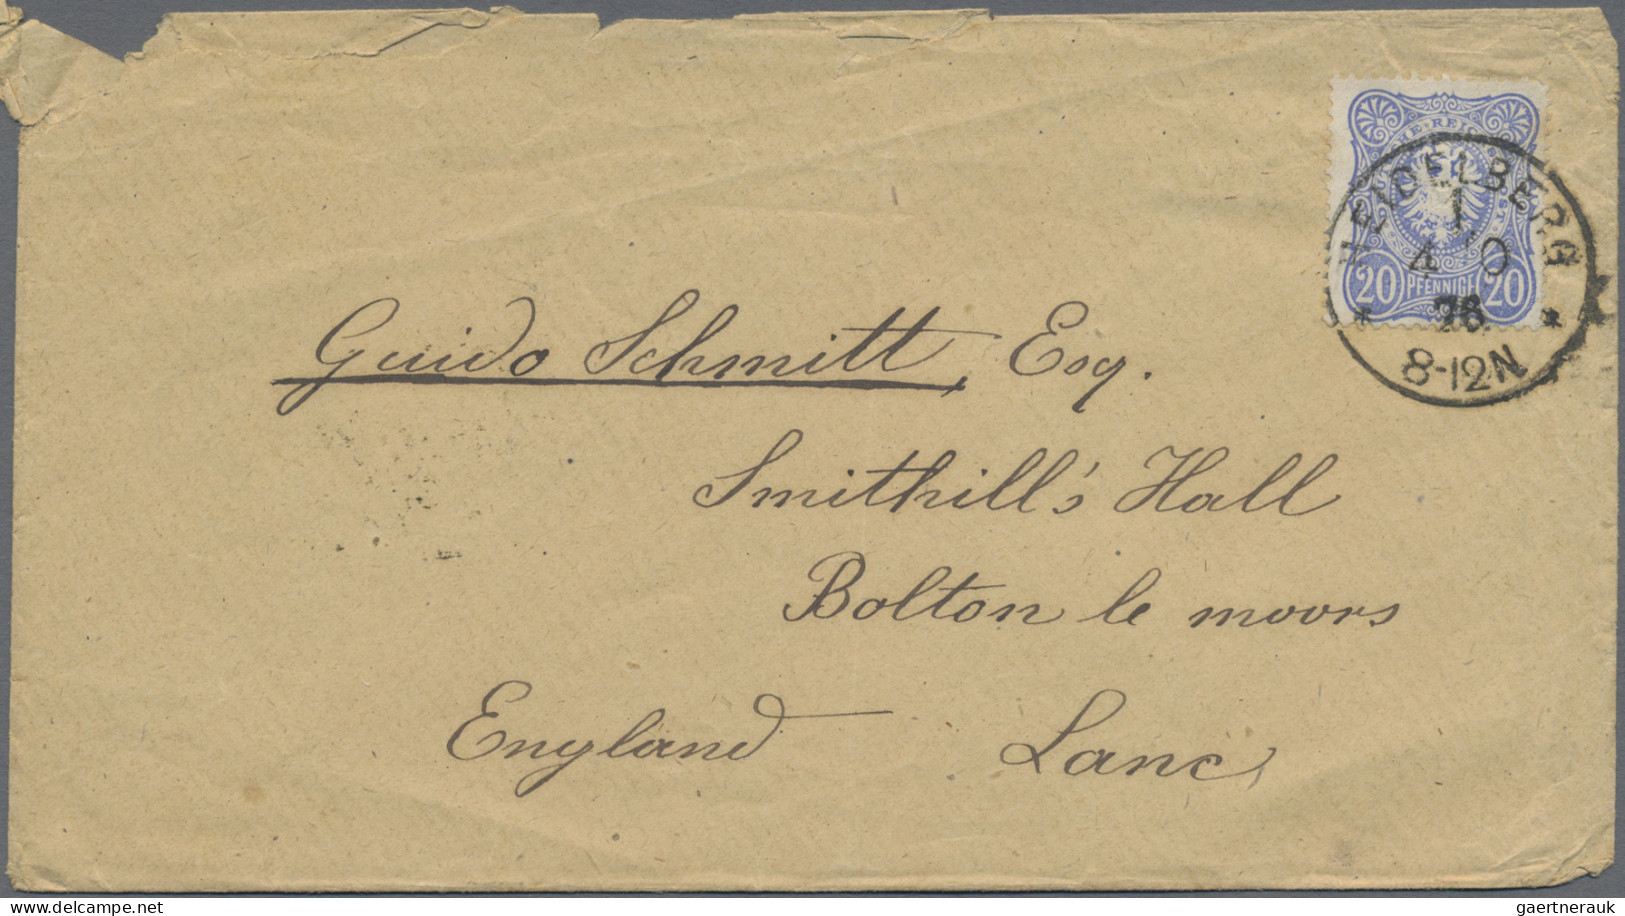 HEIDELBERG
1
4 10
76
8-12N
20 PFENNIGE 20
Guido Schmitt, Esq.
Smithill's Hall
Bolton le moors
England Lanc,
www.delcampe.net
gaertnerauk